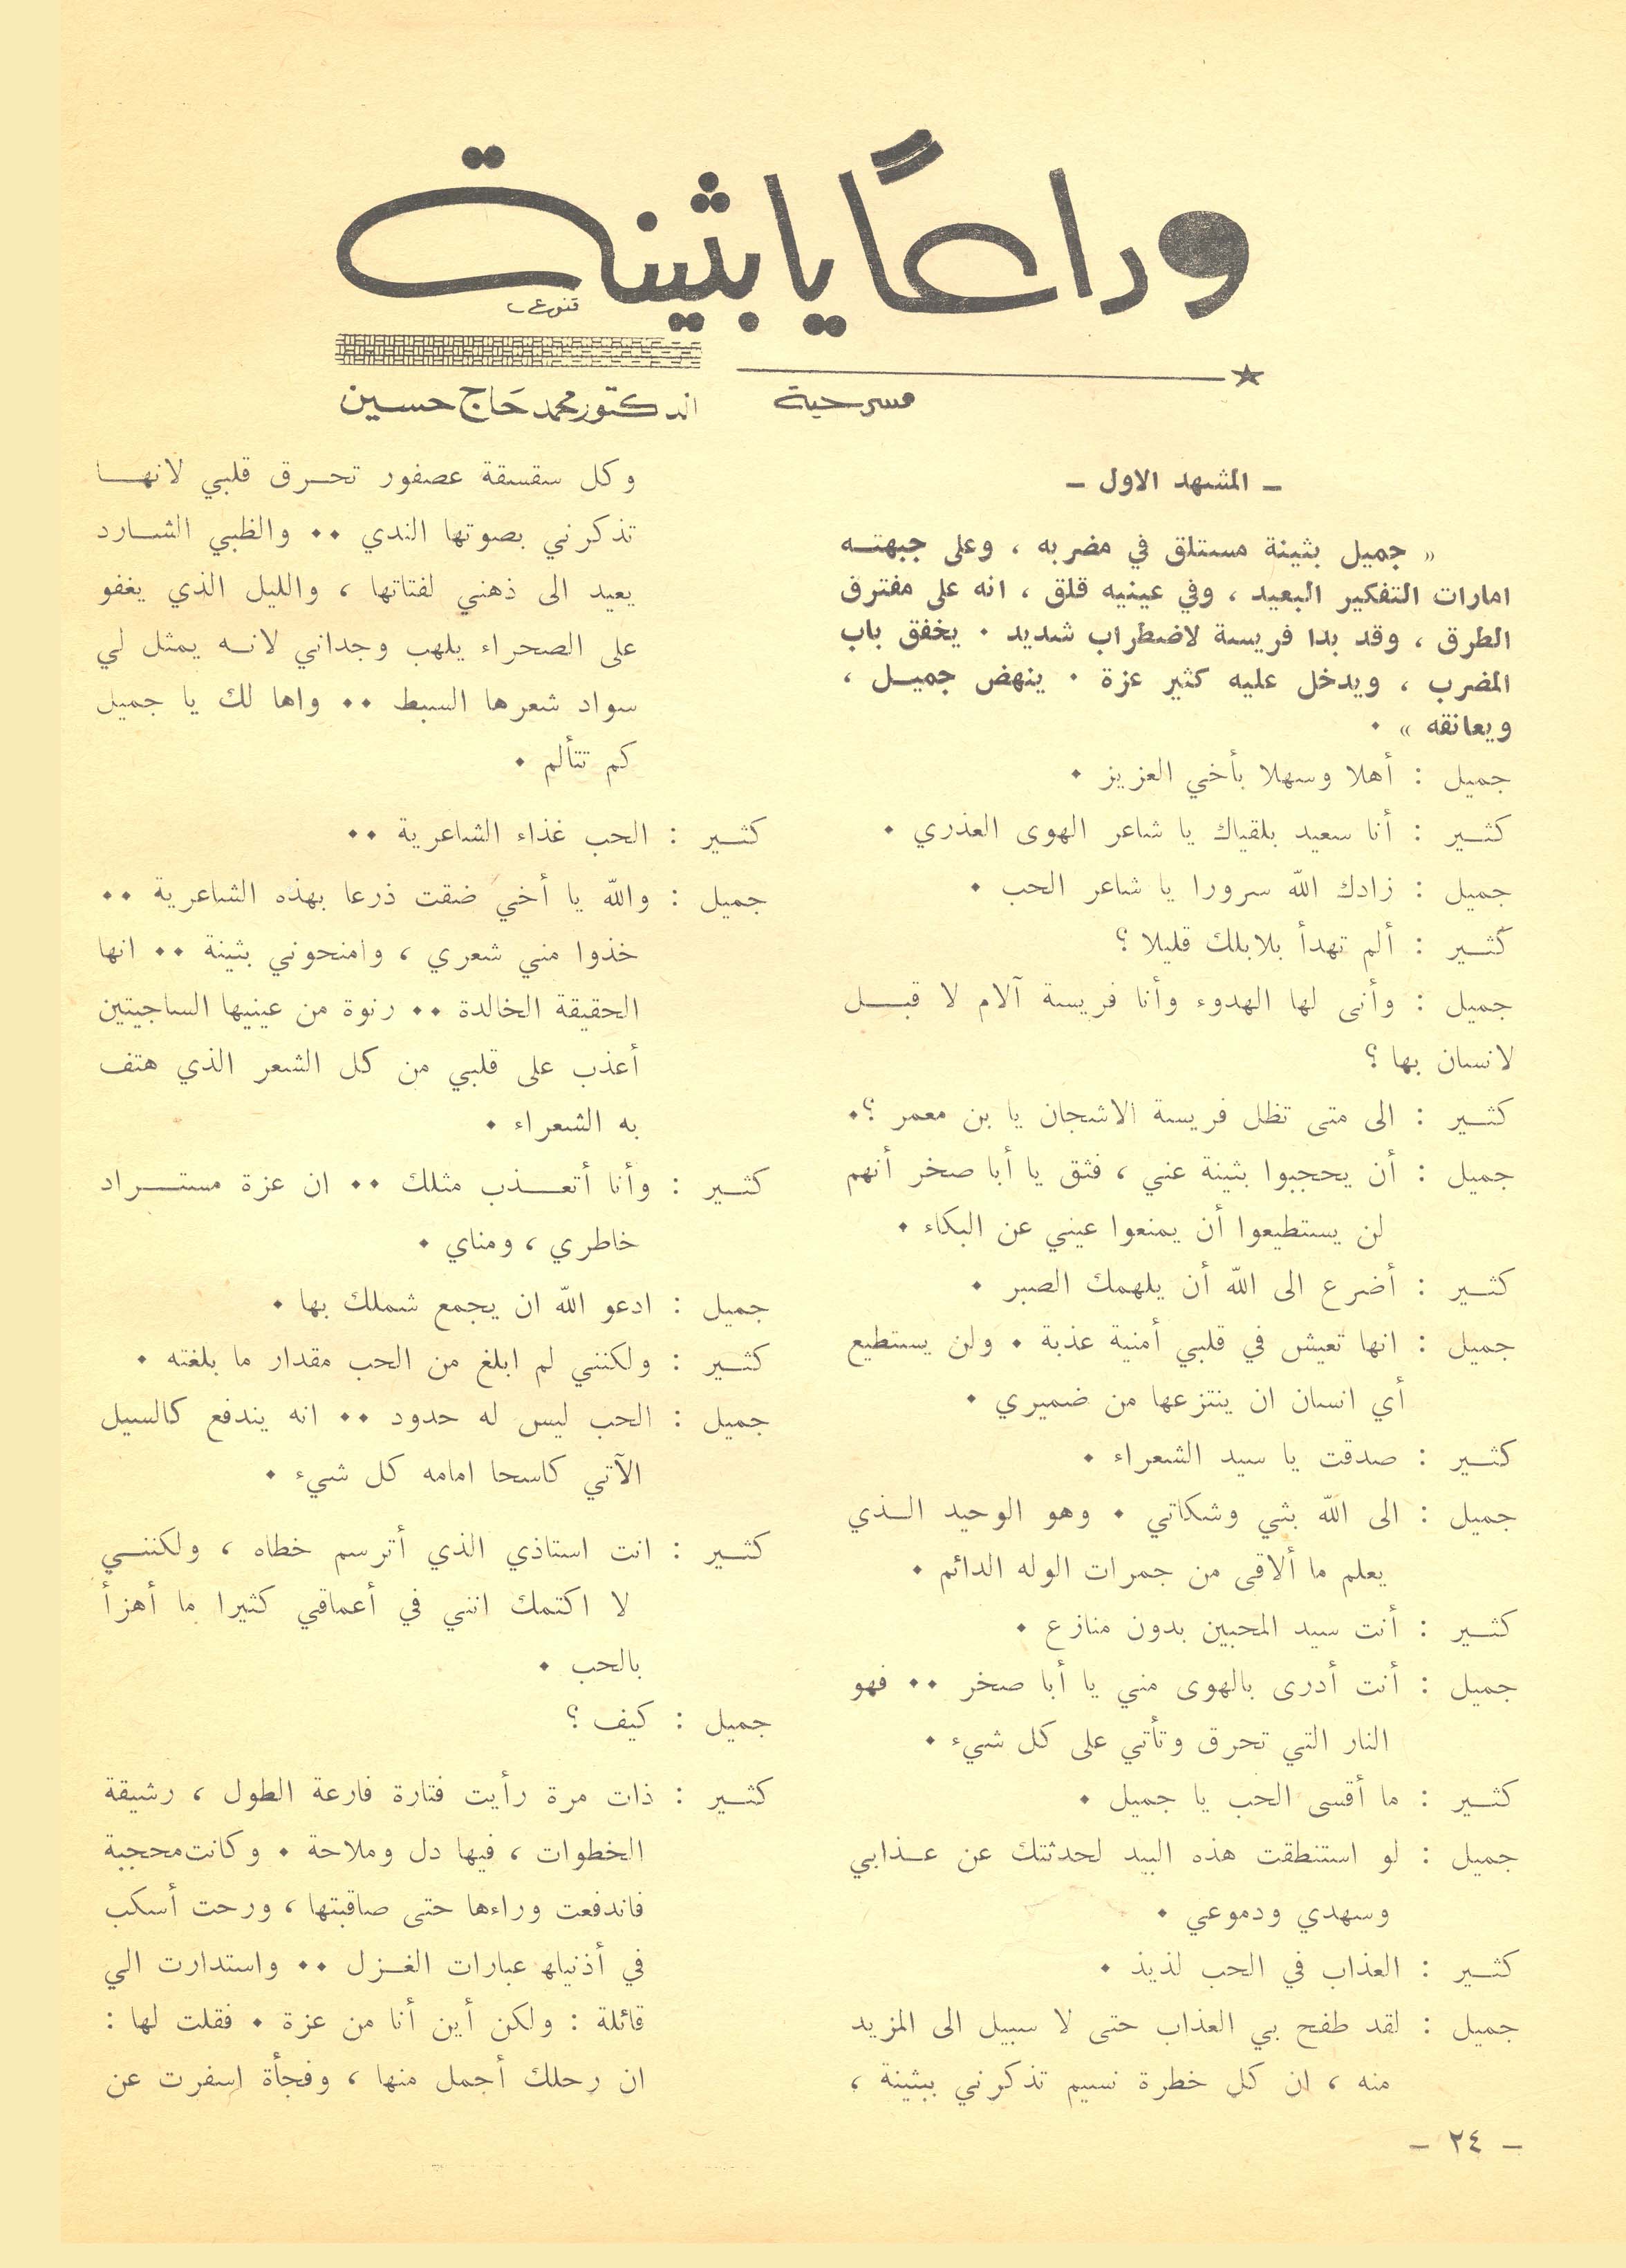 وداعًا يا بثينة
قنوعي
مسرحية
الدكتور محمد حاج حسين
– المشهد الاول –
« جميل بثينة مستلق في مضربه ، وعلى جبهته
امارات التفكير البعيد ، وفي عينيه قلق ، انه على مفترق
الطرق ، وقد بدا فريسة لاضطراب شديد . يخفق باب
المضرب ، ويدخل عليه كثير عزة . ينهض جميل ،
ويعانقه » .
جميل : أهلا وسهلا بأخي العزيز .
كثير : أنا سعيد بلقياك يا شاعر الهوى العذري .
جميل : زادك الله سرورا يا شاعر الحب .
كثير : ألم تهدأ بلابلك قليلا ؟
جميل : وأنى لها الهدوء وأنا فريسة آلام لا قبل
لانسان بها ؟
كثير : الى متى تظل فريسة الاشجان يا بن معمر ؟.
جميل : أن يحجبوا بثينة عني ، فثق يا أبا صخر أنهم
لن يستطيعوا أن يمنعوا عيني عن البكاء .
كثير : أضرع الى الله أن يلهمك الصبر .
جميل : انها تعيش في قلبي أمنية عذبة . ولن يستطيع
أي انسان ان ينتزعها من ضميري .
كثير : صدقت يا سيد الشعراء .
جميل : الى الله بثي وشكاتي . وهو الوحيد الذي
يعلم ما ألاقى من جمرات الوله الدائم .
كثير : أنت سيد المحبين بدون منازع .
جميل : أنت أدرى بالهوى مني يا أبا صخر .. فهو
النار التي تحرق وتأتي على كل شيء .
كثير : ما أقسى الحب يا جميل .
جميل : لو استنطقت هذه البيد لحدثتك عن عذابي
وسهدي ودموعي .
كثير : العذاب في الحب لذيذ .
جميل : لقد طفح بي العذاب حتى لا سبيل الى المزيد
منه ، ان كل خطرة نسيم تذكرني ببثينة ،
وكل سقسقة عصفور تحرق قلبي لانها
تذكرني بصوتها الندي .. والظبي الشارد
يعيد الى ذهني لفتاتها ، والليل الذي يغفو
على الصحراء يلهب وجداني لانه يمثل لي
سواد شعرها السبط .. واها لك يا جميل
كم تتألم .
كثير : الحب غذاء الشاعرية ..
جميل : والله يا أخي ضقت ذرعا بهذه الشاعرية ..
خذوا مني شعري ، وامنحوني بثينة .. انها
الحقيقة الخالدة .. رنوة من عينيها الساجيتين
أعذب على قلبي من كل الشعر الذي هتف
به الشعراء .
كثير : وأنا أتعذب مثلك .. ان عزة مستراد
خاطري ، ومناي .
جميل : ادعو الله ان يجمع شملك بها .
كثير : ولكنني لم ابلغ من الحب مقدار ما بلغته .
جميل : الحب ليس له حدود .. انه يندفع كالسيل
الآتي كاسحا امامه كل شيء .
كثير : انت استاذي الذي أترسم خطاه ، ولكنني
لا اكتمك انني في أعماقي كثيرا ما أهزأ
بالحب .
جميل : كيف ؟
كثير : ذات مرة رأيت فتارة فارعة الطول ، رشيقة
الخطوات ، فيها دل وملاحة . وكانت محجبة
فاندفعت وراءها حتى صاقبتها ، ورحت أسكب
في أذنيلها عبارات الغزل .. واستدارت الي
قائلة : ولكن أين أنا من عزة . فقلت لها :
ان رحلك أجمل منها ، وفجأة اسفرت عن
– ٢٤ –